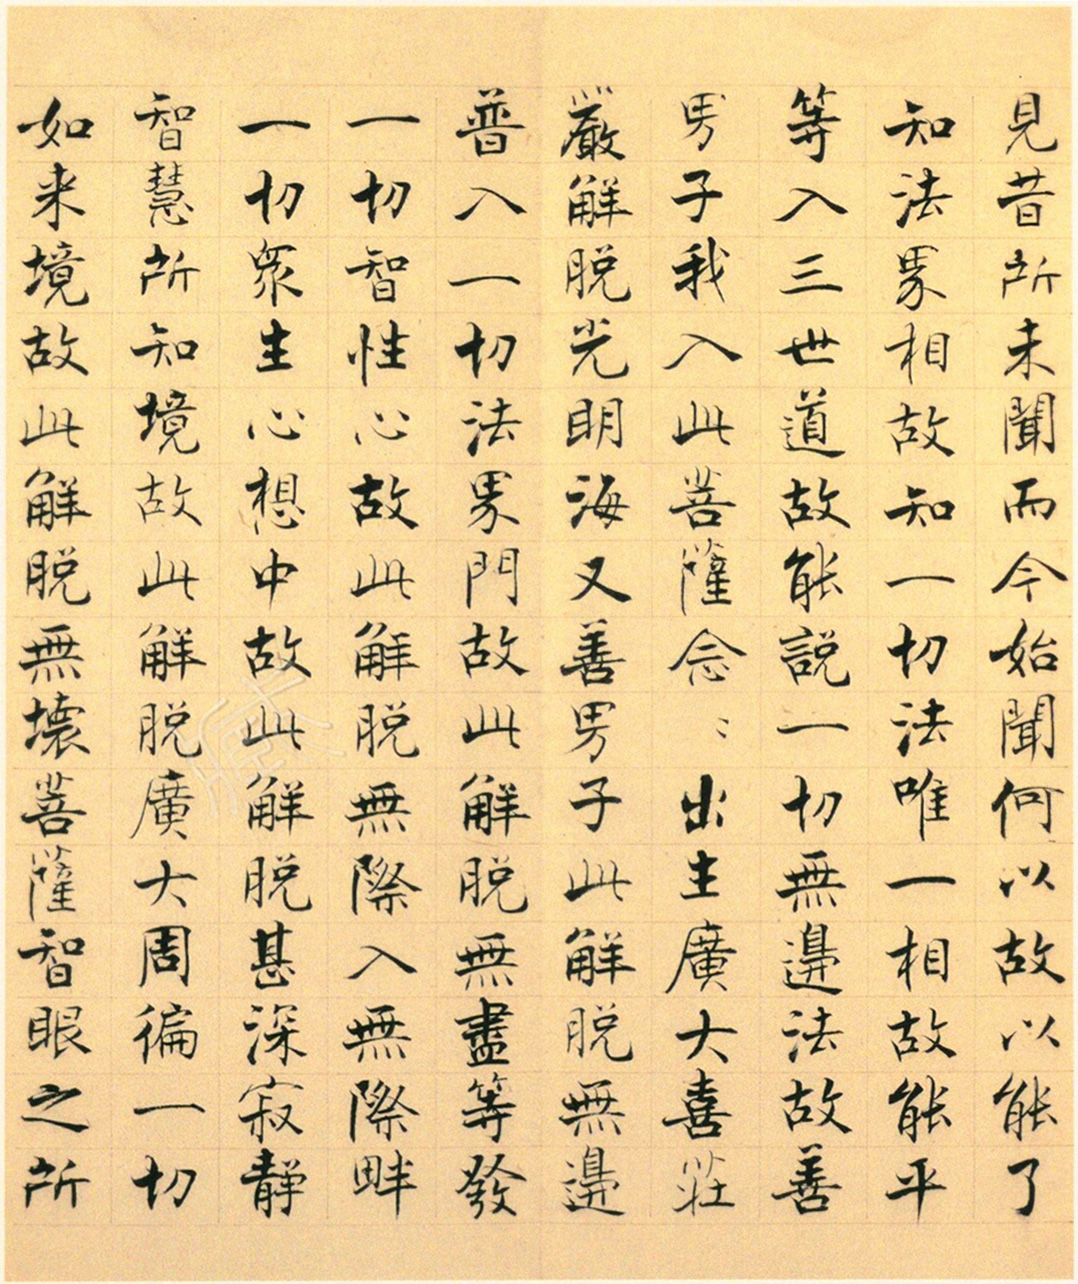 見昔所未聞而今始聞何以故以能了
知法界相故知一切法唯一相故能平
等入三世道故能説一切無邊法故善
男子我入此菩薩念〻出生廣大喜莊
嚴解脱光明海又善男子此解脱無邊
普入一切法界門故此解脱無盡等發
一切智性心故此解脱無際入無際畔
一切衆生心想中故此解脱甚深寂静
智慧所知境故此解脱廣大周徧一切
如来境故此解脱無壞菩薩智眼之所